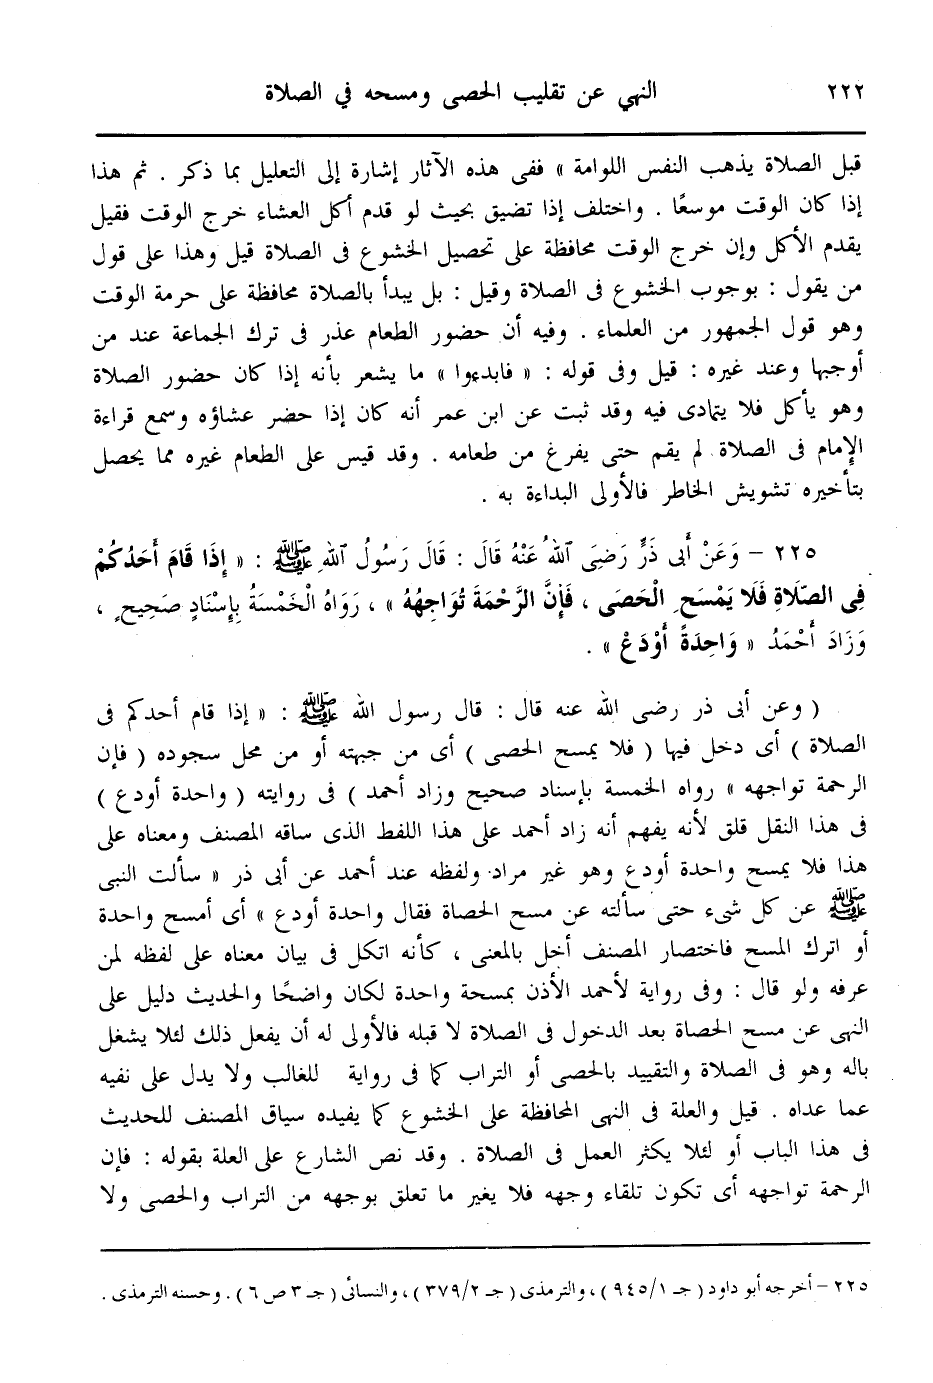 ٢٢٢ النهي عن تقليب الحصى ومسحه في الصلاة
قبل الصلاة يذهب النفس اللوامة » ففى هذه الآثار إشارة إلى التعليل بما ذكر . ثم هذا
إذا كان الوقت موسعًا . واختلف إذا تضيق بحيث لو قدم أكل العشاء خرج الوقت فقيل
يقدم الأكل وإن خرج الوقت محافظة على تحصيل الخشوع فى الصلاة قيل وهذا على قول
من يقول : بوجوب الخشوع فى الصلاة وقيل : بل يبدأ بالصلاة محافظة على حرمة الوقت
وهو قول الجمهور من العلماء . وفيه أن حضور الطعام عذر فى ترك الجماعة عند من
أوجبها وعند غيره : قيل وفى قوله : « فابدءوا » ما يشعر بأنه إذا كان حضور الصلاة
وهو يأكل فلا يتمادى فيه وقد ثبت عن ابن عمر أنه كان إذا حضر عشاؤه وسمع قراءة
الإمام فى الصلاة لم يقم حتى يفرغ من طعامه . وقد قيس على الطعام غيره مما يحصل
بتأخيره تشويش الخاطر فالأولى البداءة به .
٢٢٥ – وَعَنْ أَبى ذَرٍّ رَضِىَ ٱللهُ عَنْهُ قَالَ : قَالَ رَسُولُ ٱللهِ ﷺ : « إِذَا قَامَ أَحَدُكُمْ
فِى الصَّلَاةِ فَلَا يَمْسَحِ الْحَصَى ، فَإِنَّ الرَّحْمَةَ تُوَاجِهُهُ » ، رَوَاهُ الْخَمْسَةُ بِإِسْنَادٍ صَحِيحٍ ،
وَزَادَ أَحْمَدُ « وَاحِدَةً أَوْدَعْ » .
( وعن أبى ذر رضى الله عنه قال : قال رسول الله ﷺ : « إذا قام أحدكم فى
الصلاة ) أى دخل فيها ( فلا يمسح الحصى ) أى من جبهته أو من محل سجوده ( فإن
الرحمة تواجهه » رواه الخمسة بإسناد صحيح وزاد أحمد ) فى روايته ( واحدة أودع )
فى هذا النقل قلق لأنه يفهم أنه زاد أحمد على هذا اللفط الذى ساقه المصنف ومعناه على
هذا فلا يمسح واحدة أودع وهو غير مراد ولفظه عند أحمد عن أبى ذر « سألت النبى
ﷺ عن كل شىء حتى سألته عن مسح الحصاة فقال واحدة أودع » أى أمسح واحدة
أو اترك المسح فاختصار المصنف أخل بالمعنى ، كأنه اتكل فى بيان معناه على لفظه لمن
عرفه ولو قال : وفى رواية لأحمد الأذن بمسحة واحدة لكان واضحًا والحديث دليل على
النهى عن مسح الحصاة بعد الدخول فى الصلاة لا قبله فالأولى له أن يفعل ذلك لئلا يشغل
باله وهو فى الصلاة والتقييد بالحصى أو التراب كما فى رواية للغالب ولا يدل على نفيه
عما عداه . قيل والعلة فى النهى المحافظة على الخشوع كما يفيده سياق المصنف للحديث
فى هذا الباب أو لئلا يكثر العمل فى الصلاة . وقد نص الشارع على العلة بقوله : فإن
الرحمة تواجهه أى تكون تلقاء وجهه فلا يغير ما تعلق بوجهه من التراب والحصى ولا
٢٢٥ – أخرجه أبو داود ( جـ ٩٤٥/١ ) ، والترمذى ( جـ ٣٧٩/٢ ) ، والنسائى ( جـ ٣ ص ٦ ) . وحسنه الترمذى .